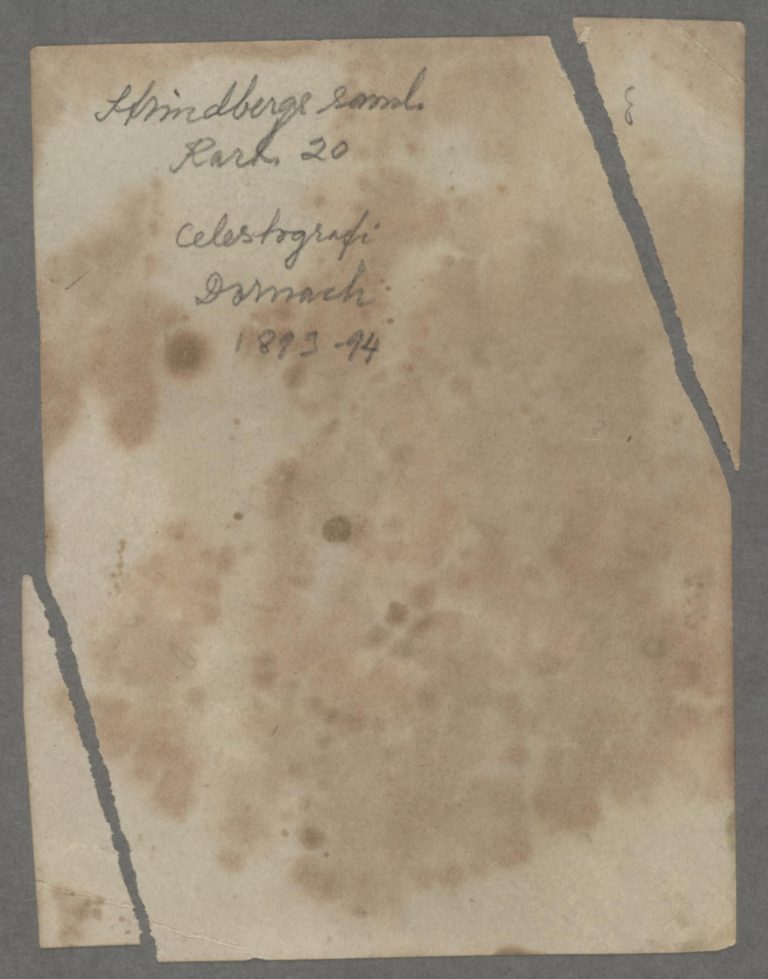 Strindbergs saml.
Kart. 20
Celestografi
Dornach
1893-94